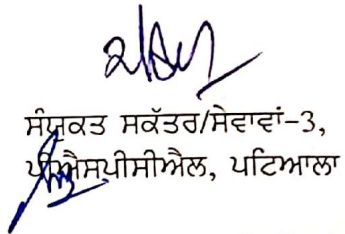 ਸੰਯੁਕਤ ਸਕੱਤਰ/ਸੇਵਾਵਾਂ-3,
ਪੀਐਸਪੀਸੀਐਲ, ਪਟਿਆਲਾ